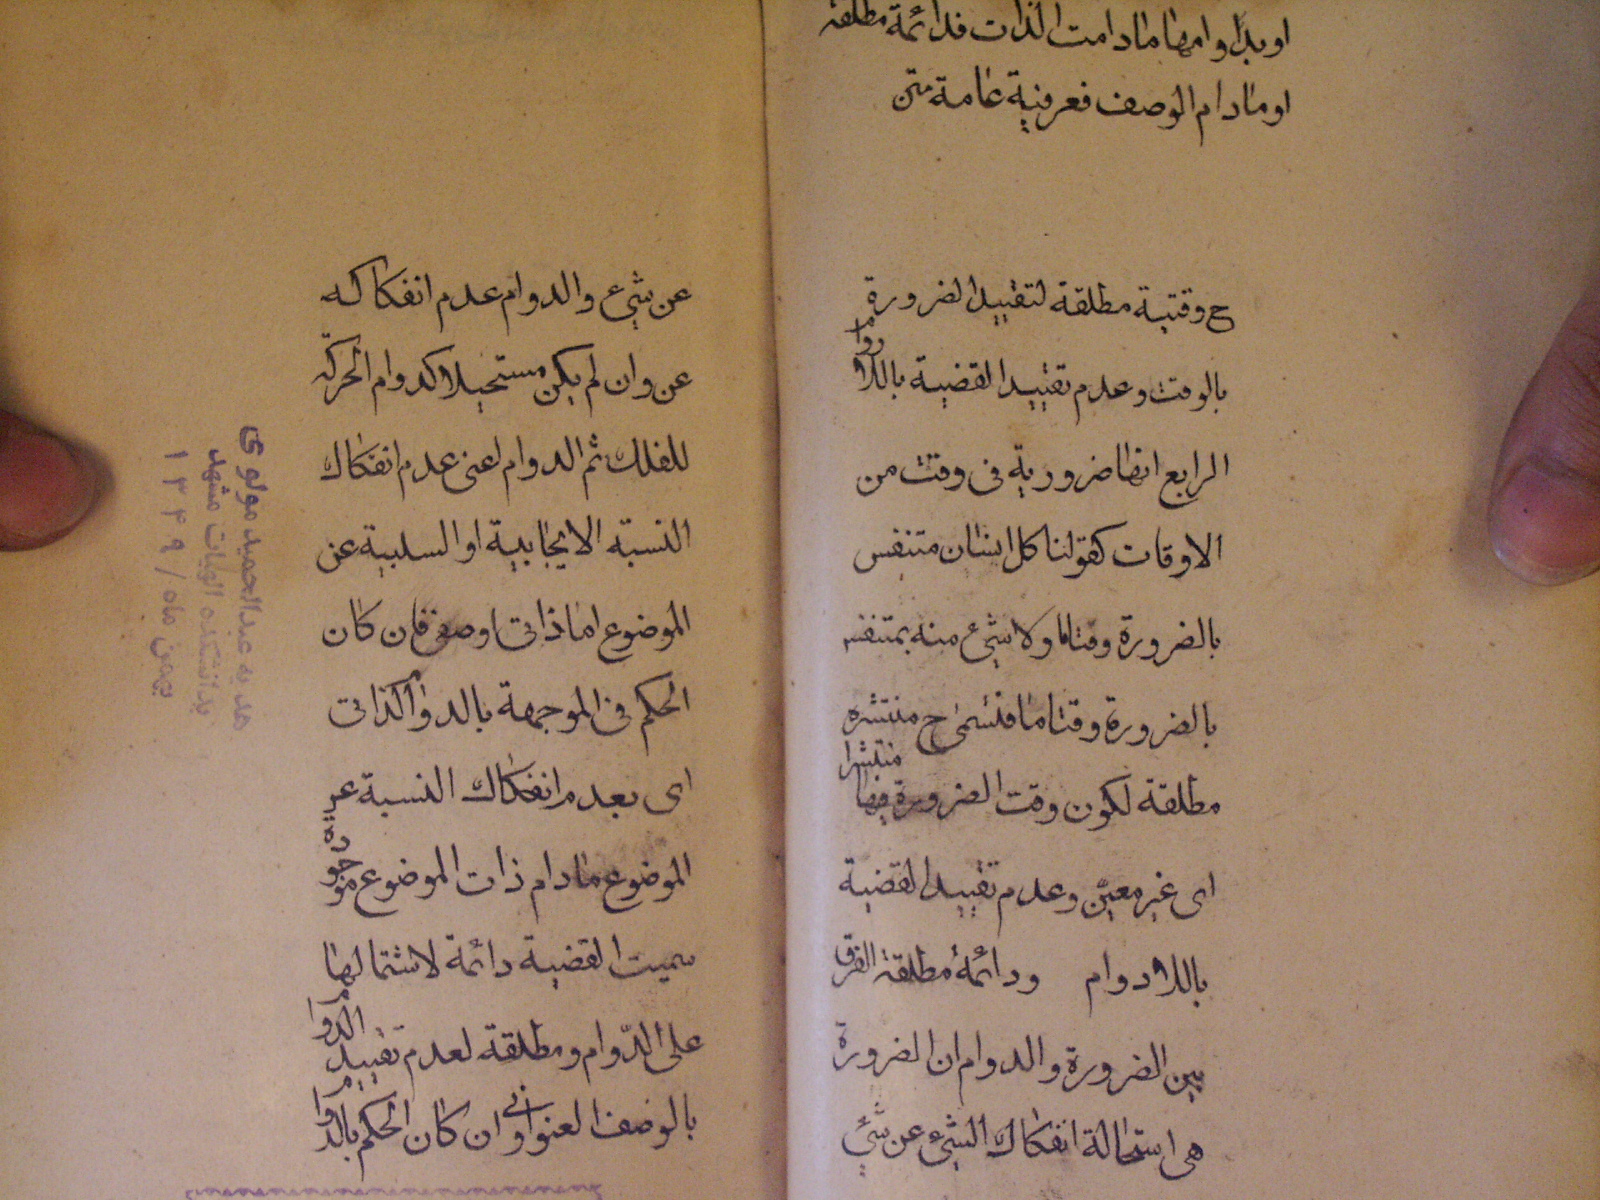 او بدوامها مادامت الذات فدائمة مطلقة
او مادام الوصف فعرفية عامة متن
ح وقتية مطلقة لتقييد الضرورة
بالوقت وعدم تقييد القضية باللادوام
الرابع انها ضرورية فى وقت من
الاوقات كقولنا كل انسان متنفس
بالضرورة وقتاما ولا شىء منه بمتنفس
بالضرورة وقتاما فتسمى ح منتشره
مطلقة لكون وقت الضرورة فيها منتشرا
اى غير معين وعدم تقييد القضية
باللادوام ودائمة مطلقة الفرق
بين الضرورة والدوام ان الضرورة
هى استحالة انفكاك الشىء عن شىء
عن شىء والدوام عدم انفكاكه
عن وان لم يكن مستحيلا كدوام الحركة
للفلك ثم الدوام اعنى عدم انفكاك
النسبة الايجابية او السلبية عن
الموضوع اما ذاتى او وصفى فان كان
الحكم فى الموجهة بالدوام الذاتى
اى بعدم انفكاك النسبة عن
الموضوع مادام ذات الموضوع موجودة
سميت القضية دائمة لاشتمالها
على الدوام ومطلقة لعدم تقييد الدوام
بالوصف العنوانى وان كان الحكم بالدوام
هديه عبدالحميد مولوى
بدانشكده الهيات مشهد
بهمن ماه / ۱۳۴۹